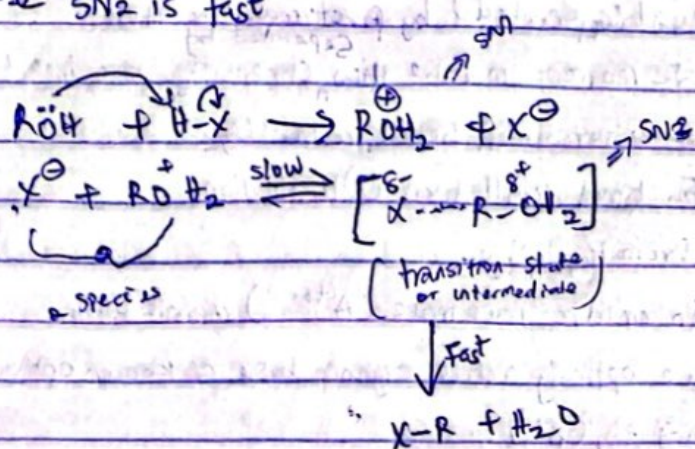 SN2 is fast
SN1
RÖH + H-X → R⊕OH₂ + X⊖
SN2
X⊖ + RO⁺H₂ slow ⇌ [δ- X----R-OH₂ δ+]
2 species
(transition state
or intermediate)
Fast
X-R + H₂O